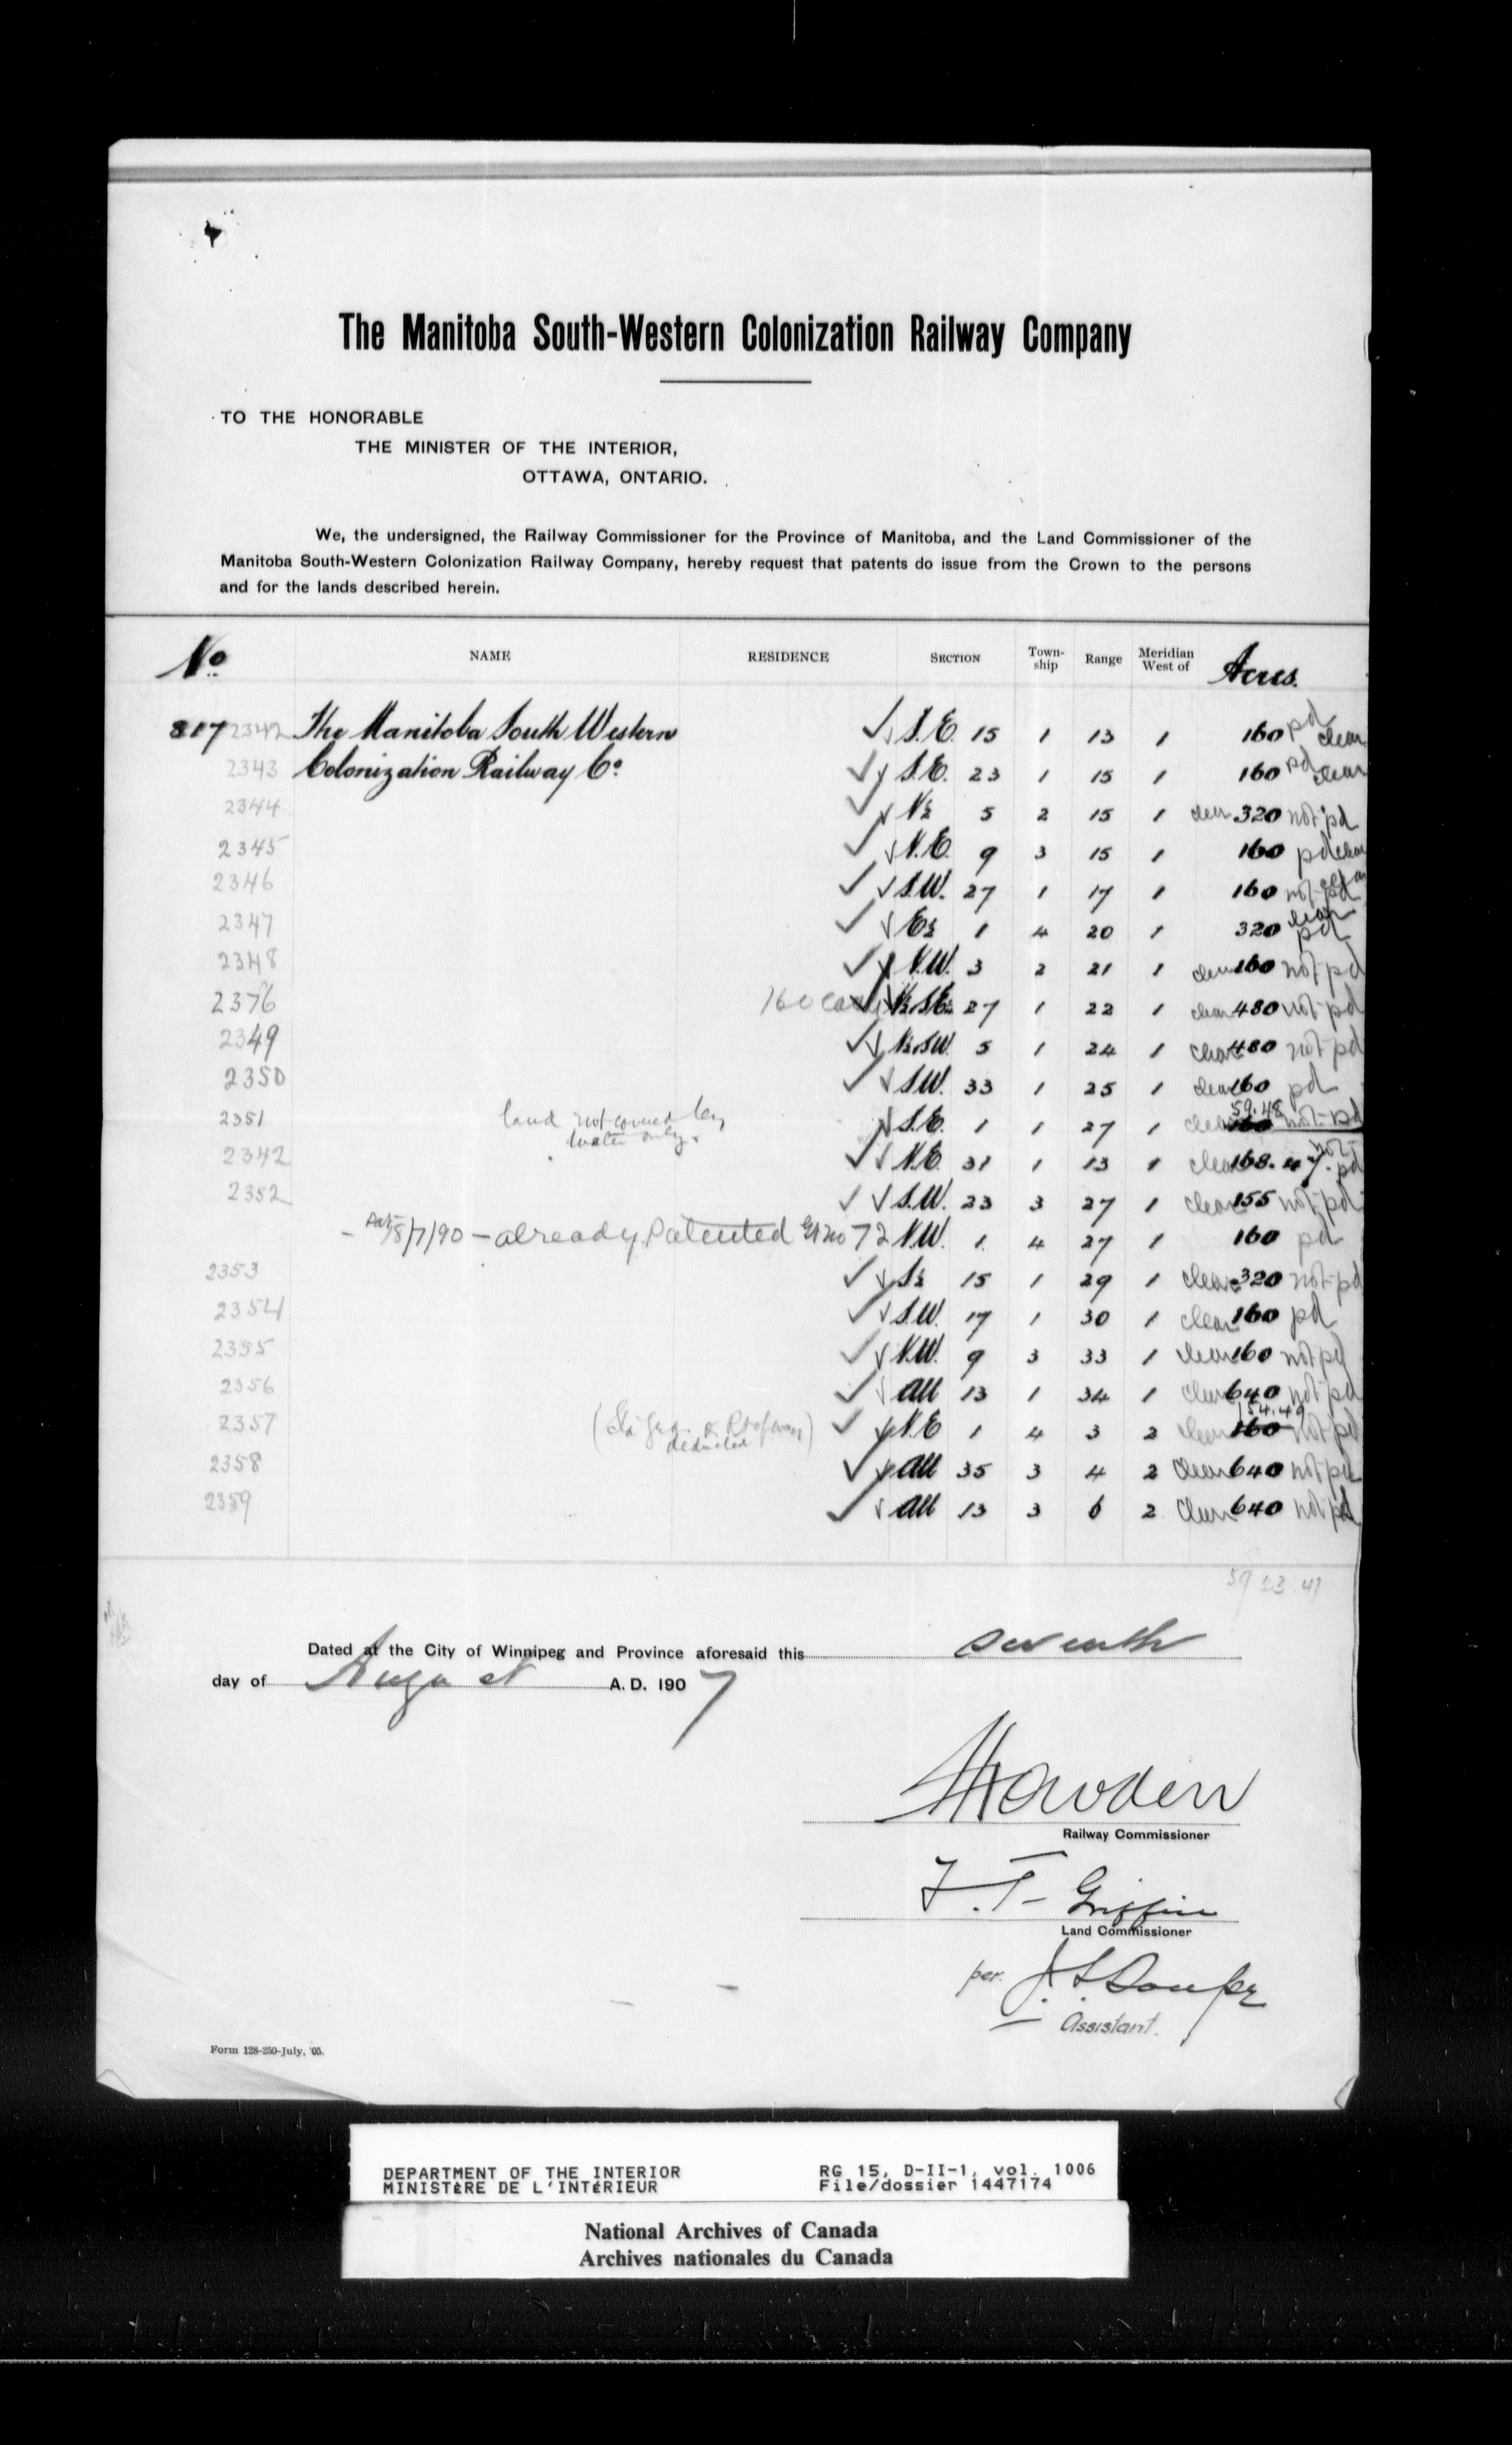 The Manitoba South-Western Colonization Railway Company
TO THE HONORABLE
THE MINISTER OF THE INTERIOR,
OTTAWA, ONTARIO.
We, the undersigned, the Railway Commissioner for the Province of Manitoba, and the Land Commissioner of the
Manitoba South-Western Colonization Railway Company, hereby request that patents do issue from the Crown to the persons
and for the lands described herein.
No. NAME RESIDENCE SECTION Town-ship Range Meridian West of Acres.
817 2342 The Manitoba South Western ✓ S.E. 15 1 13 1 160 pd clear
2343 Colonization Railway Co. ✓ S.E. 23 1 15 1 160 pd clear
2344 ✓ N½ 5 2 15 1 clear 320 not pd
2345 ✓ N.E. 9 3 15 1 160 pd clear
2346 ✓ S.W. 27 1 17 1 160 not pd clear
2347 ✓ E½ 1 4 20 1 320 clear pd
2348 ✓ N.W. 3 2 21 1 clear 160 not pd
2376 160 ✓ N½ S.E. 27 1 22 1 clear 480 not pd
2349 ✓ N½ S.W. 5 1 24 1 clear 480 not pd
2350 ✓ S.W. 33 1 25 1 clear 160 pd
2351 land not covered by water only. S.E. 1 1 27 1 clear 160 59.48 not pd
2342 ✓ N.E. 31 1 13 1 clear 168.47 not pd
2352 ✓ S.W. 23 3 27 1 clear 155 not pd
- Pat 18/7/90 - already Patented Gt no 72 N.W. 1 4 27 1 160 pd
2353 ✓ S½ 15 1 29 1 clear 320 not pd
2354 ✓ S.W. 17 1 30 1 clear 160 pd
2355 ✓ N.W. 9 3 33 1 clear 160 not pd
2356 ✓ All 13 1 34 1 clear 640 not pd
2357 deducted ✓ N.E 1 4 3 2 clear 160 154.49 not pd
2358 ✓ All 35 3 4 2 clear 640 not pd
2359 ✓ All 13 3 6 2 clear 640 not pd
5923.47
Dated at the City of Winnipeg and Province aforesaid this seventh
day of August A.D. 1907
Howden
Railway Commissioner
F. T. Griffin
Land Commissioner
per.
Assistant.
Form 128-250-July, '05.
DEPARTMENT OF THE INTERIOR RG 15, D-II-1, vol. 1006
MINISTÈRE DE L'INTÉRIEUR File/dossier 1447174
National Archives of Canada
Archives nationales du Canada